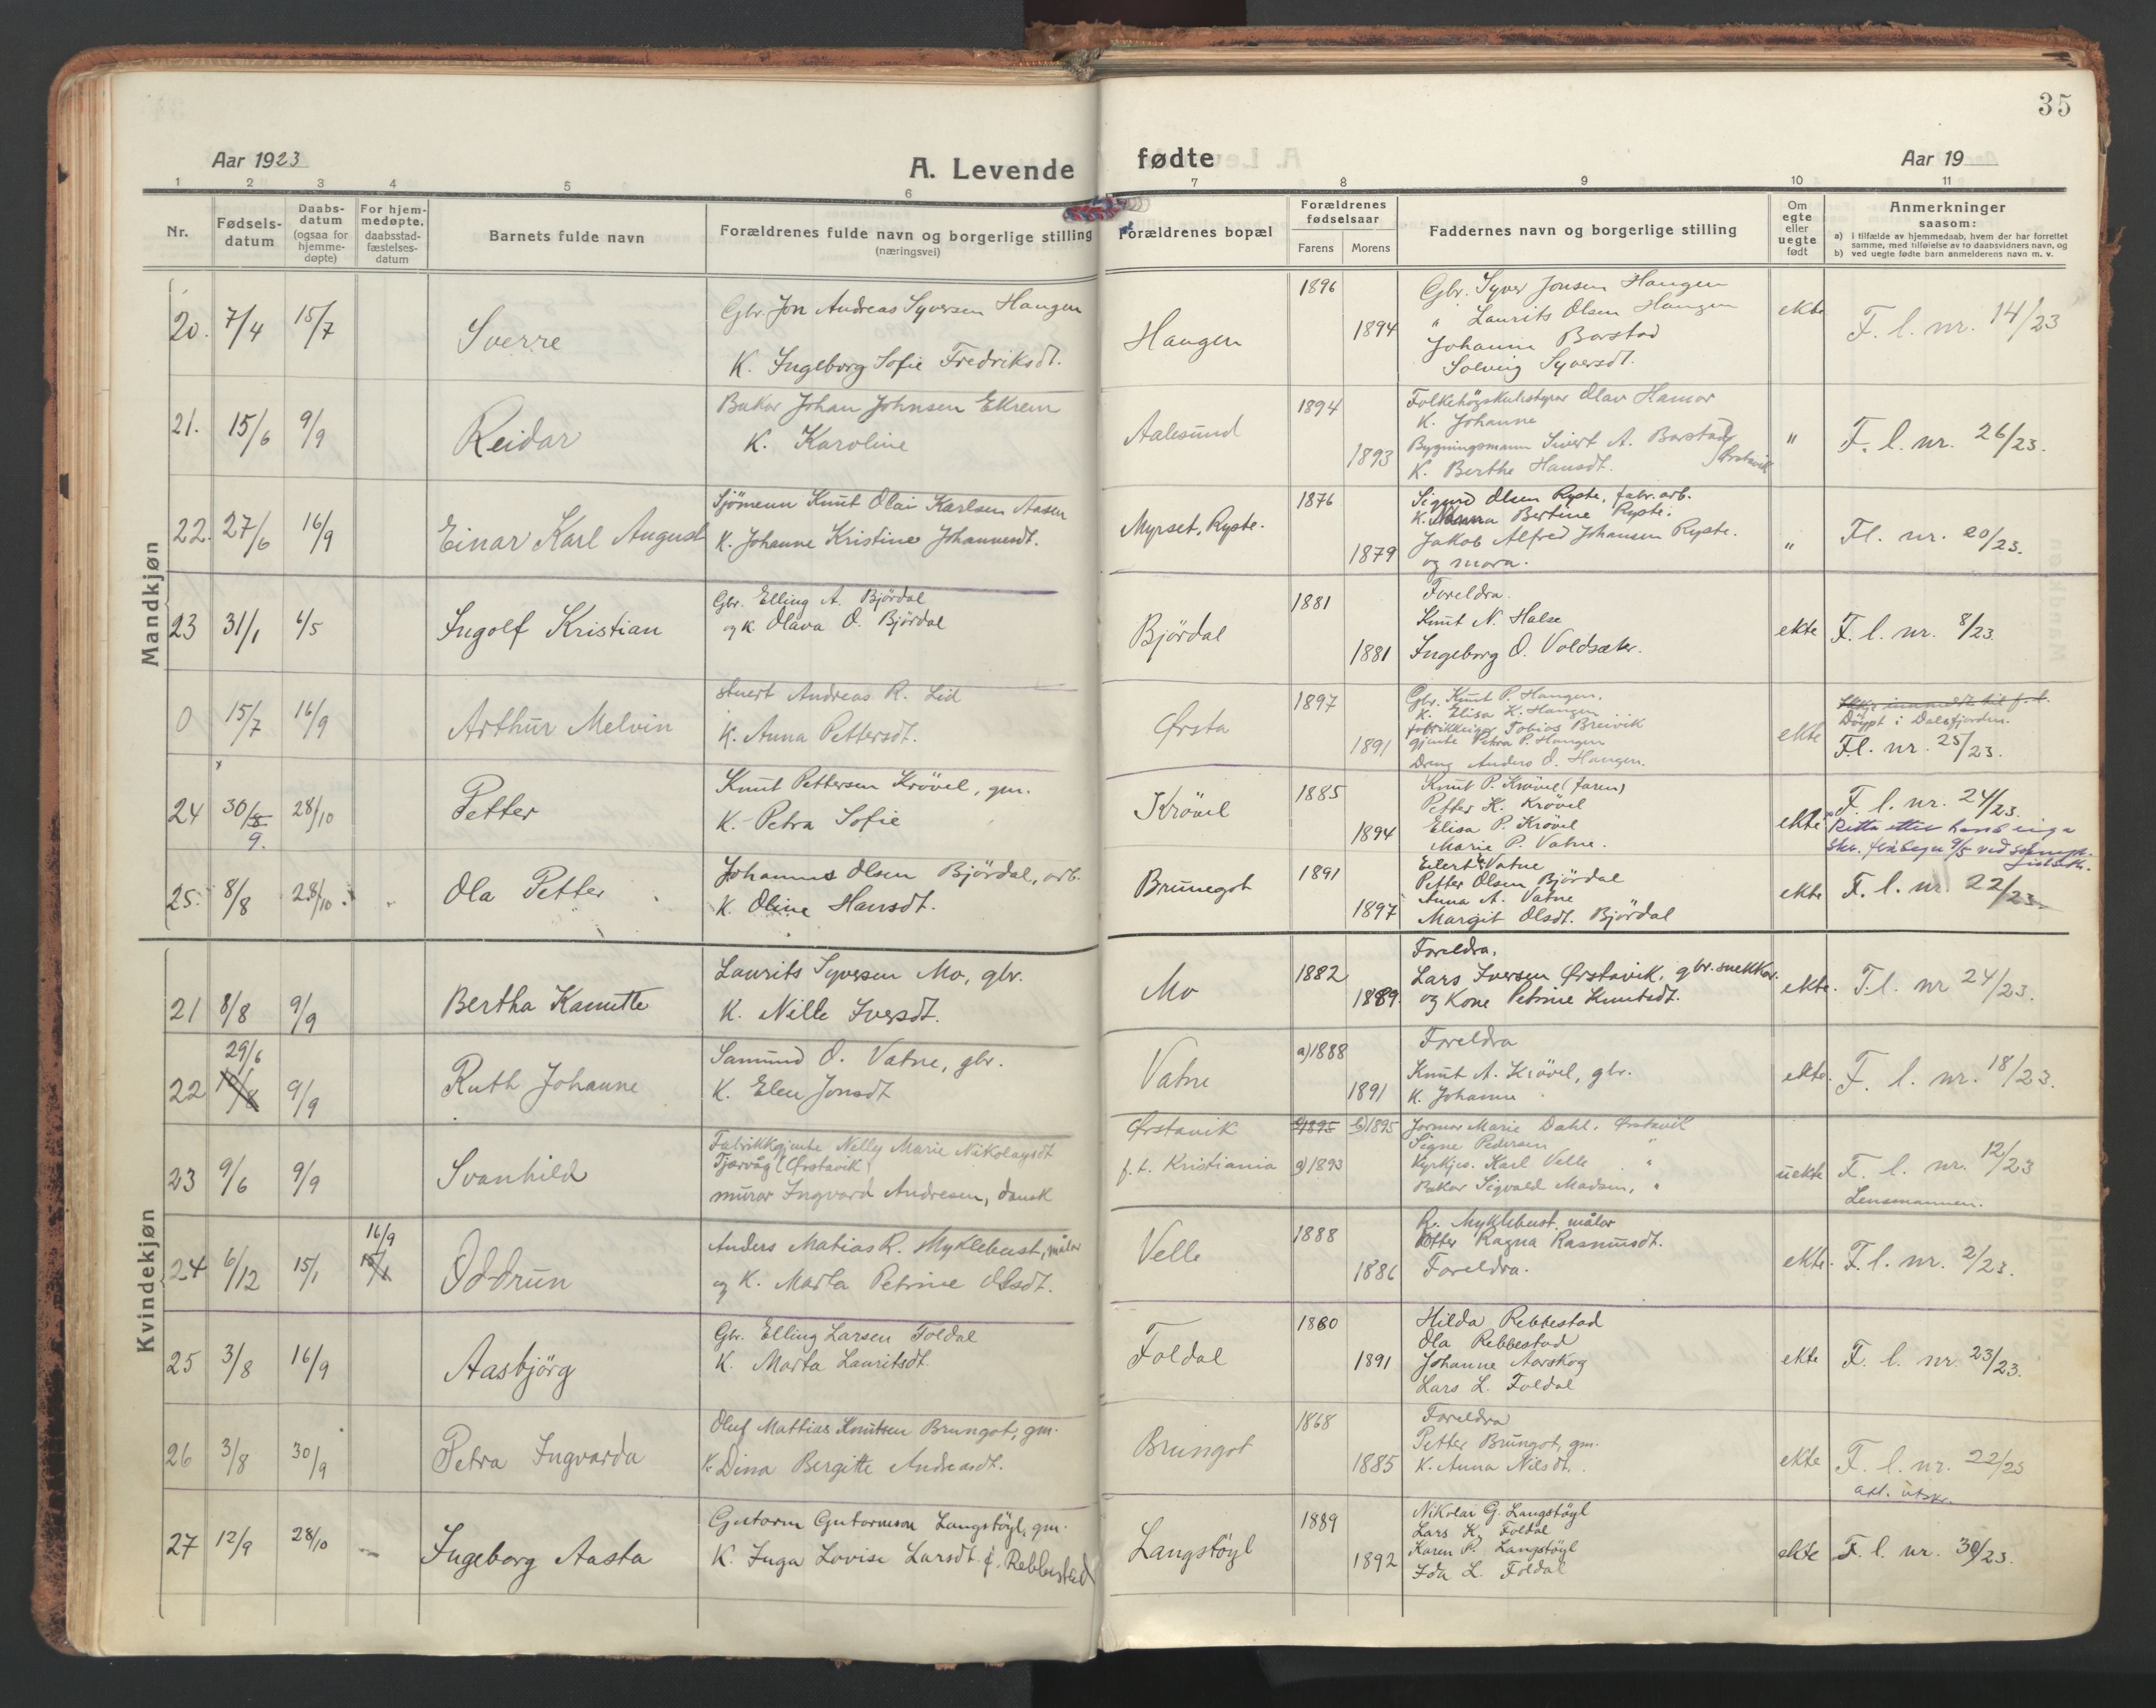 35
Aar 1923
A. Levende
fødte
Aar 19
1 2 3 4 5 6 7 8 9 10 11
Nr.
Fødsels-
datum
Daabs-
datum
(ogsaa for
hjemme-
døpte)
For hjem-
medøpte,
daabsstad-
fæstelses-
datum
Barnets fulde navn
Forældrenes fulde navn og borgerlige stilling
(næringsvei)
Forældrenes bopæl
Forældrenes
fødselsaar
Farens Morens
Faddernes navn og borgerlige stilling
Om
egte
eller
uegte
født
Anmerkninger
saasom:
a) i tilfælde av hjemmedaab, hvem der har forrettet
samme, med tilføielse av to daabsvidners navn, og
b) ved uegte fødte barn anmelderens navn m. v.
Mandkjøn
20. 7/4 15/7 Sverre
Gbr. Jon Andreas Syversen Haugen
K. Ingeborg Sofie Fredriksdt.
Haugen 1896 1894
Gbr. Syver Jonsen Haugen
" Laurits Olsen Haugen
Johanne Barstad
Solveig Syversdt.
ekte F. l. nr. 14/23
21. 15/6 9/9 Reidar
Bakar Johan Johnsen Ekrem
K. Karoline
Aalesund 1894 1893
Folkehögskulestyrar Olav Hamar
K. Johanne
Bygningsmann Sivert A. Barstad
K. Berthe Hansdt. Ørstavik
" F. l. nr. 26/23.
22. 27/6 16/9 Einar Karl August
Sjömenn Knut Olai Karlsen Aasen
K. Johanne Kristine Johannesdt.
Myrset, Ryste. 1876 1879
Sigurd Olsen Ryste, fabr. arb.
K. Bertine Ryste.
Jakob Alfred Johansen Ryste.
og mora.
" Fl. nr. 20/23.
23 31/1 6/5 Ingolf Kristian
Gbr. Elling A. Björdal
og K. Olava O. Björdal
Björdal 1881 1881
Foreldra.
Knut N. Halse
Ingeborg O. Voldsæter.
ekte F. l. nr. 8/23.
0 15/7 16/9 Arthur Melvin
Andreas R. Lid
K. Anna Pettersdt.
Ørsta 1897 1891
Gbr. Knut P. Haugen.
K. Elisa K. Haugen
fabrikkeigar Tobias Breivik
gjente Petra P. Haugen
Dreng Anders O. Haugen.
ekte
Döypt i Dalsfjorden.
Fl. nr. 25/23.
24 30/8 9. 28/10 Petter
Knut Pettersen Krövel, gm.
K. Petra Sofie
Krövel 1885 1894
Knut P. Krövel (faren)
Petter K. Krövel
Elisa P. Krövel
Marie P. Vatne.
ekte F. l. nr. 24/23.
25. 8/8 28/10. Ola Petter
Johannes Olsen Björdal, arb.
K. Oline Hansdt.
Brunegot 1891 1897
Eilert Vatne
Petter Olsen Björdal
Anna A. Vatne
Margit Olsdt. Björdal
ekte F. l. nr. 22/23.
Kvindekjøn
21 8/8 9/9 Bertha Kamitte
Laurits Syversen Mo, gbr.
K. Nille Iversdt.
Mo 1882 1889.
Foreldra.
Lars Iversen Ørstavik, gbr. snekkar.
og Kone Petrine Knutsdt.
ekte. F. l. nr 24/23.
22 29/6 10/8 9/9 Ruth Johanne
Samund O. Vatne, gbr.
K. Elen Jonsdt
Vatne a) 1888 1891
Foreldra
Knut A. Krövel, gbr.
K. Johanne
ekte. F. l. nr. 18/23.
23 9/6 9/9 Svanhild
Fabrikkgjente Nelly Marie Nikolaysdt
Tjervåg (Ørstavik)
murar Ingvard Andresen, dansk
Ørstavik
f. t. Kristiania
1895 b) 1895 a) 1893
Jormor Marie Dahl, Ørstavik
Signe Pedersen "
Kyrkjes. Karl Velle "
Bakar Sigvald Madsen, "
uekte F. l. nr. 12/23
Lensmannen.
24 6/12 15/1 16/9 15/1 Oddrun
Anders Matias R. Myklebust, målar
og K. Marta Petrine Olsdt.
Velle 1888 1886
R. Myklebust, målar
Dotter Ragna Rasmusdt.
Foreldra.
ekte. F. l. nr. 2/23.
25 3/8 16/9 Aasbjörg
Gbr. Elling Larsen Foldal
K. Marta Lauritsdt.
Foldal 1880 1891
Hilda Rebbestad
Ola Rebbestad
Johanne Aarskog
Lars L. Foldal
ekte F. l. nr. 23/23.
26 3/8 30/9 Petra Ingvarda
Oluf Mattias Knutsen Brungot, gm.
K. Dina Bergitte Andreasdt.
Brungot 1868 1885
Foreldra
Petter Brungot, gm.
K. Anna Nilsdt.
ekte F. l. nr. 22/23
att. utskr.
27 12/9 28/10 – Ingeborg Aasta
Gutorm Gutormson Langstöyl, gm.
K. Inga Lovise Larsdt f. Rebbestad
Langstöyl 1889 1892
Nikolai G. Langstöyl
Lars K. Foldal
Karen P. Langstöyl
Ida L. Foldal
ekte F. l. nr. 30/23.